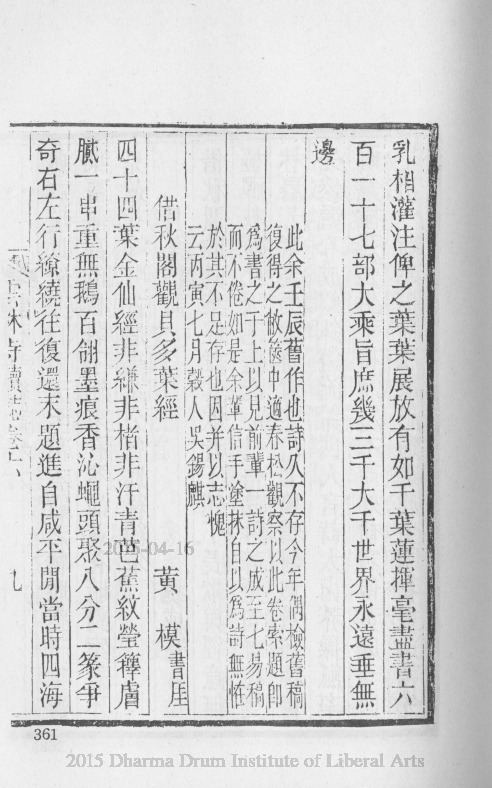 乳相灌注俾之葉葉展放有如千葉蓮揮毫盡書六
百一十七部大乘旨庶幾三千大千世界永遠垂無
邊
此余壬辰舊作也詩久不存今年偶檢舊稿
復得之敝篋中適春松觀察以此卷索題即
為書之于上以見前輩一詩之成至七易稿
而不倦如是余輩信手塗抹自以為詩無惟
於其不足存也因并以志愧
云丙寅七月穀人吳錫麒
借秋閣觀貝多葉經 黃模書厓
四十四葉金仙經非縑非楮非汗青芭蕉紋瑩籜膚
膩一串重無鵝百翎墨痕香沁蠅頭聚八分二篆爭
奇右左行繚繞往復還末題進自咸平閒當時四海
林寺續志卷六 九
361
2015-04-16
2015 Dharma Drum Institute of Liberal Arts